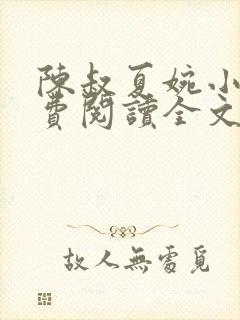 陳叔夏婉小
費閱讀全文
故人無處覓